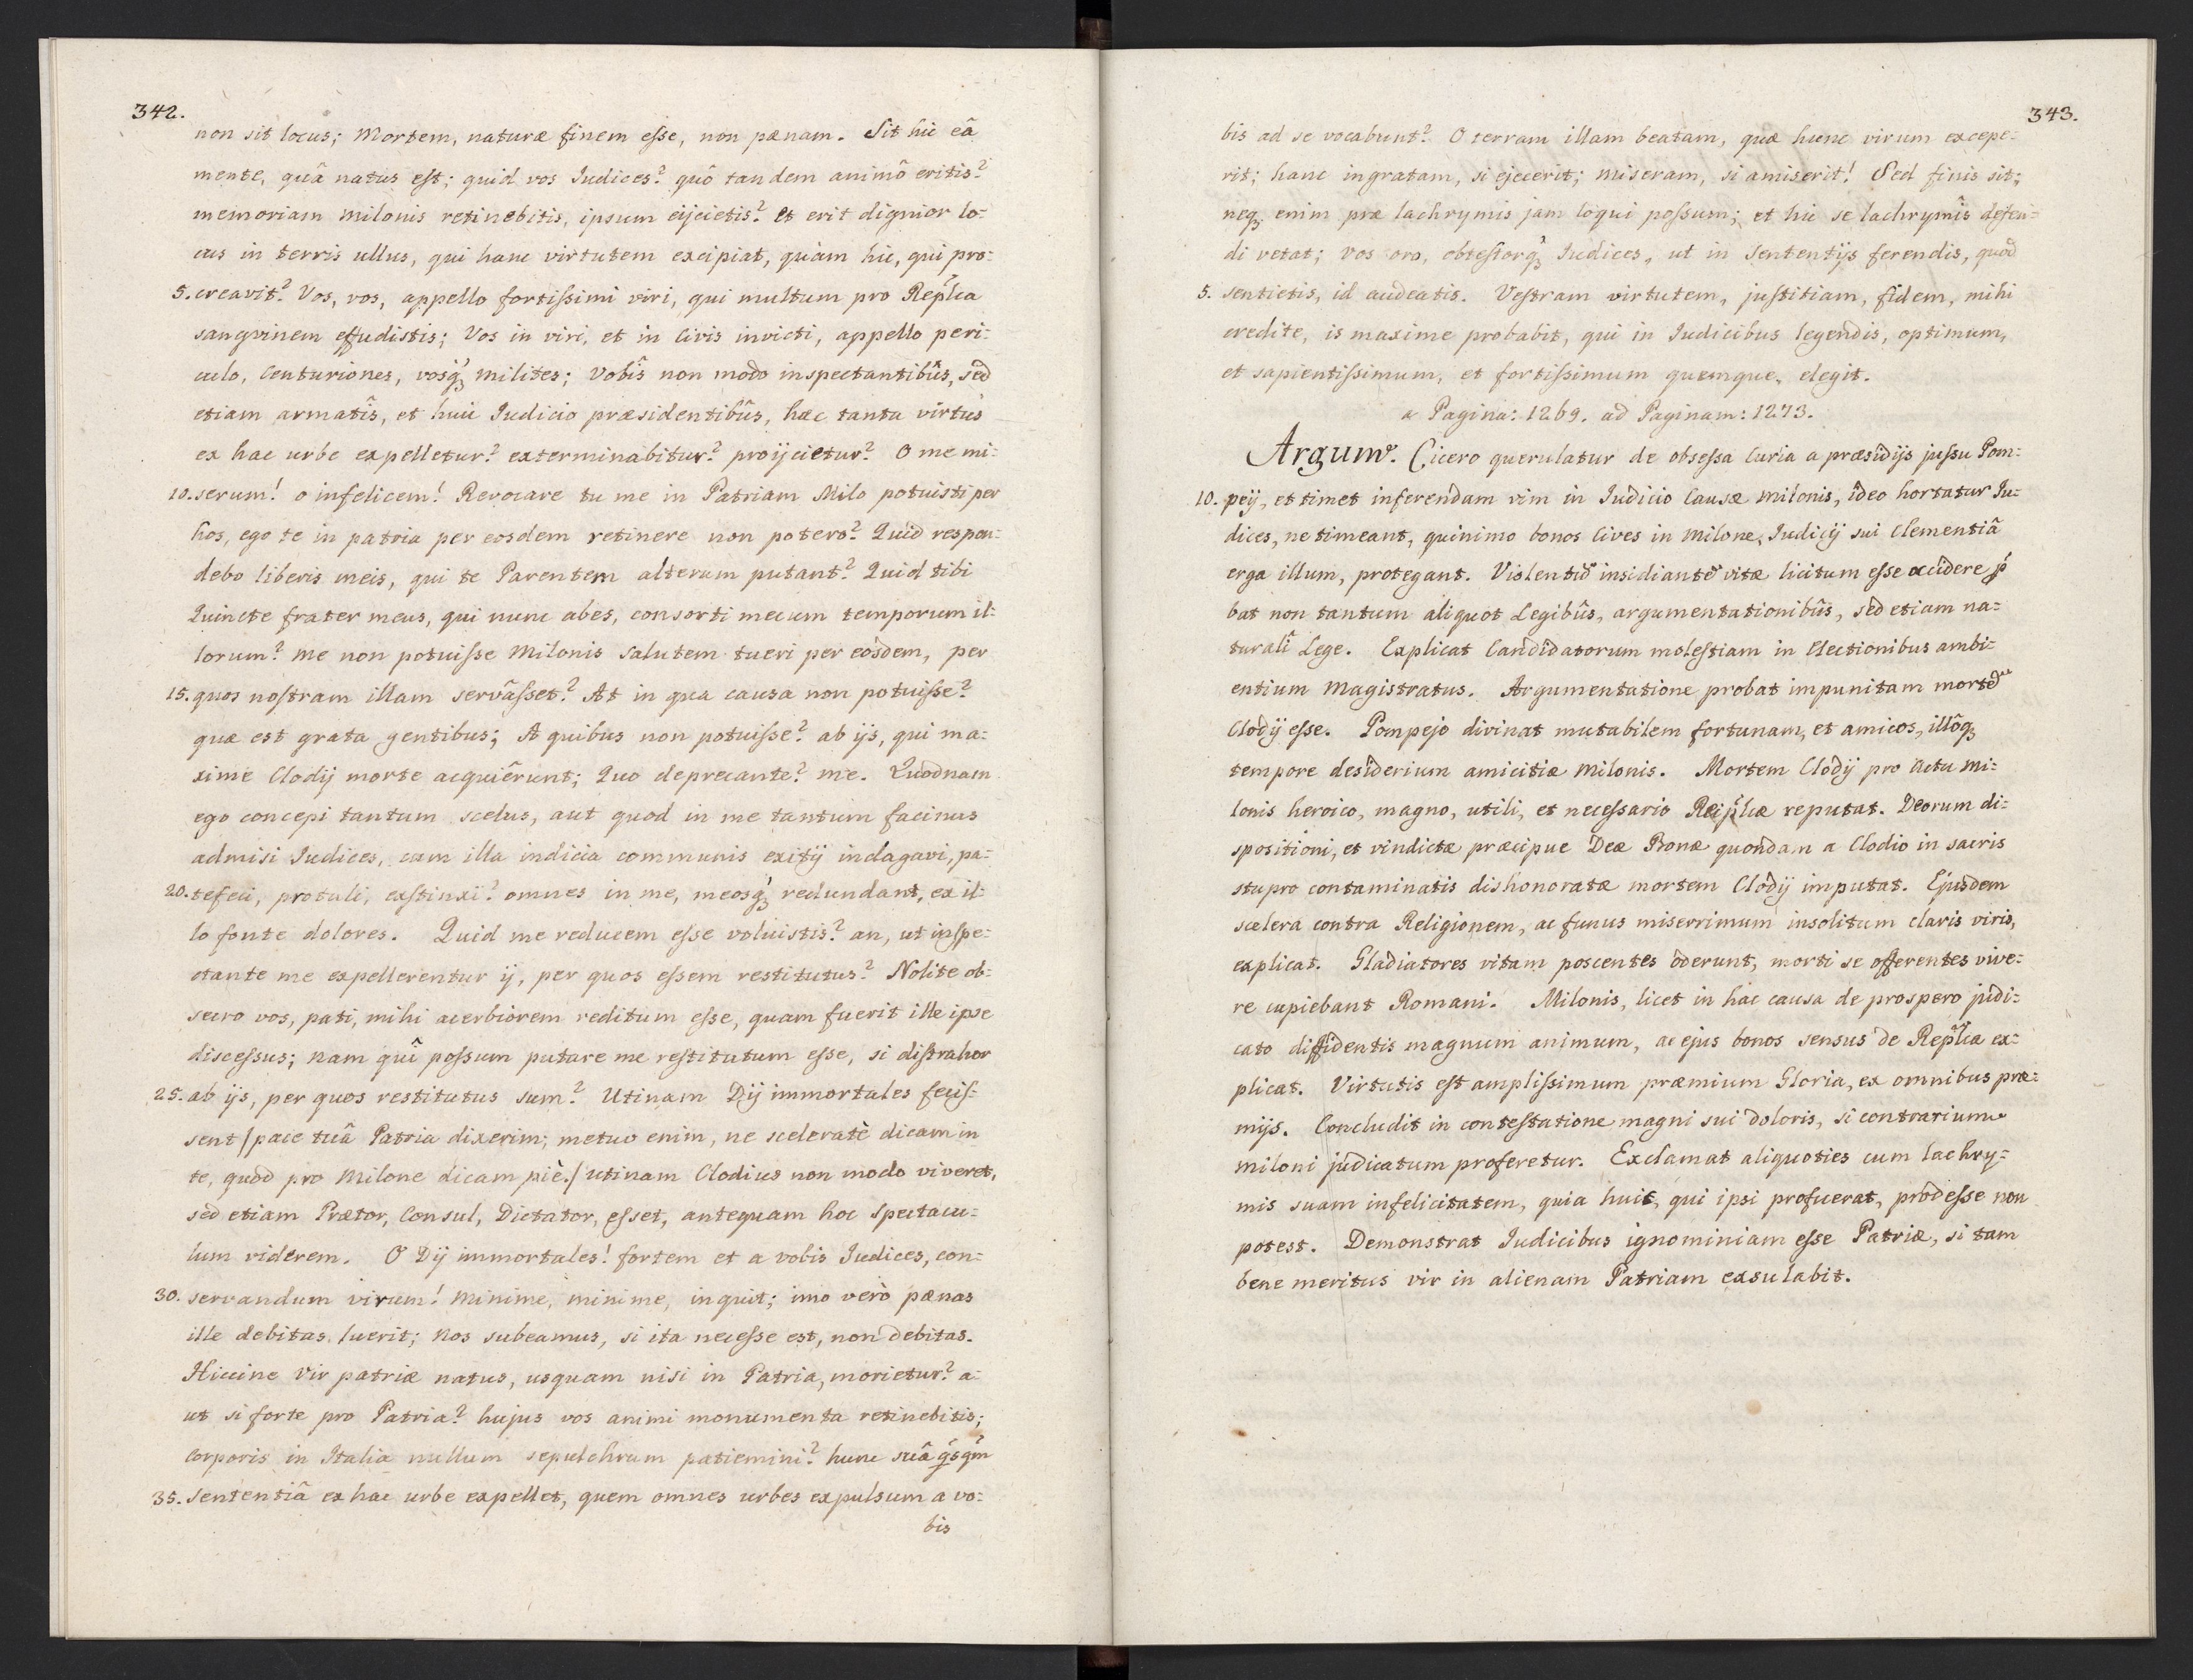 342.
non sit locus; Mortem, naturæ finem esse, non pænam. Sit hic eâ
mente, quâ natus est; quid vos Judices? quô tandem animô eritis?
memoriam Milonis retinebitis, ipsum eijcietis? et erit dignior lo=
cus in terris ullus, qui hanc virtutem excipiat, quàm hic, qui pro=
5. creavit? Vos, vos, appello fortissimi viri, qui multum pro Replca
sangvinem effudistis; Vos in viri, et in Civis invicti, appello peri=
culo, Centuriones, vosq́ꝫ milites; Vobîs non modo inspectantibûs, sed
etiam armatîs, et huic Judicio præsidentibûs, hæc tanta virtus
ex hac urbe expelletur? exterminabitur? proijcietur? O me mi=
10. serum! o infelicem! Revocare tu me in Patriam Milo potuisti per
hos, ego te in patria per eosdem retinere non potero? Quid respon=
debo liberis meis, qui te Parentem alterum putant? Quid tibi
Quincte frater meus, qui nunc abes, consorti mecum temporum il=
lorum? me non potuisse Milonis salutem tueri per eosdem, per
15. quos nostram illam servâsset? At in qua causa non potuisse?
quæ est grata gentibus; A quibus non potuisse? ab ijs, qui ma=
xime Clodij morte acquiêrunt; Quo deprecante? me. Quodnam
ego concepi tantum scelus, aut quod in me tantum facinus
admisi Judices, cum illa indicia communis exitij indagavi, pa=
20. tefeci, protuli, exstinxi? omnes in me, meosq́ꝫ redundant, ex il=
lo fonte dolores. Quid me reducem esse voluistis? an, ut inspe=
ctante me expellerentur ij, per quos essem restitutus? Nolite ob=
secro vos, pati, mihi acerbiorem reditum esse, quam fuerit ille ipse
discessus; Nam quî possum putare me restitutum esse, si distrahor
25. ab ijs, per quos restitutus sum? Utinam Dij immortales fecis=
sent /pace tuâ Patria dixerim; metuo enim, ne sceleratè dicam in
te, quod pro Milone dicam piè./ utinam Clodius non modo viveret,
sed etiam Prætor, Consul, Dictator, esset, antequam hoc Spectacu=
lum viderem. O Dij immortales! fortem et a vobis Judices, con=
30. servandum virum! Minime, minime, inquit; imo verò pænas
ille debitas luerit; Nos subeamus, si ita necesse est, non debitas.
Hiccine Vir patriæ natus, usquam nisi in Patria, morietur? a=
ut si forte pro Patria? hujus vos animi monumenta retinebitis;
Corporis in Italia nullum sepulchrum patiemini? hunc suâ q́sqm̃
35. Sententiâ ex hac urbe expellet, quem omnes urbes expulsum a vo=
bis
343.
bis ad se vocabunt? O terram illam beatam, quæ hunc virum excepe=
rit; hanc ingratam, si ejecerit; miseram, si amiserit! Sed finis sit;
neqꝫ enim præ lachrymis jam loqui possum; et hic se lachrymîs defen=
di vetat; Vos oro, obtestorq́ꝫ Judices, ut in Sententijs ferendis, quod
5. sentietis, id audeatis. Vestram virtutem, justitiam, fidem, mihi
credite, is maxime probabit, qui in Judicibus legendis, optimum,
et sapientissimum, et fortissimum quemque, elegit.
a Pagina: 1269. ad Paginam: 1273.
Argum. Cicero querulatur de obsessa Curia a præsidijs jussu Pom=
10. peij, et timet inferendam vim in Judicio Causæ Milonis, ideo hortatur Ju=
dices, ne timeant, quinimo bonos Cives in Milone, Judicij sui Clementiâ
erga illum, protegant. Violentũ insidiantẽ vitæ licitum esse occidere p̃
bat non tantum aliquot Legibûs, argumentationibûs, sed etiam na=
turali Lege. Explicat Candidatorum molestiam in Electionibus ambi=
entium Magistratus. Argumentatione probat impunitam mortẽ
Clodij esse. Pompejo divinat mutabilem fortunam, et amicos, illôqꝫ
tempore desiderium amicitiæ Milonis. Mortem Clodij pro actu Mi=
lonis heroico, magno, utili, et necessario Reiplcæ reputat. Deorum di=
spositioni, et vindictæ præcipue Deæ Bonæ quondam a Clodio in sacris
stupro contaminatis dishonoratæ mortem Clodij imputat. Ejusdem
scelera contra Religionem, ac funus miserrimum insolitum claris viris,
explicat. Gladiatores vitam poscentes oderunt, morti se offerentes vive=
re cupiebant Romani. Milonis, licet in hac causa de prospero judi=
cato diffidentis magnum animum, ac ejus bonos sensus de Replca ex=
plicat. Virtutis est amplissimum præmium Gloria, ex omnibus præ=
mijs. Concludit in contestatione magni sui doloris, si contrarium
Miloni judicatum proferetur. Exclamat aliquoties cum lachry=
mis suam infelicitatem, quia huic, qui ipsi profuerat, prodesse non
potest. Demonstrat Judicibus ignominiam esse Patriæ, si tam
bene meritus vir in alienam Patriam exsulabit.